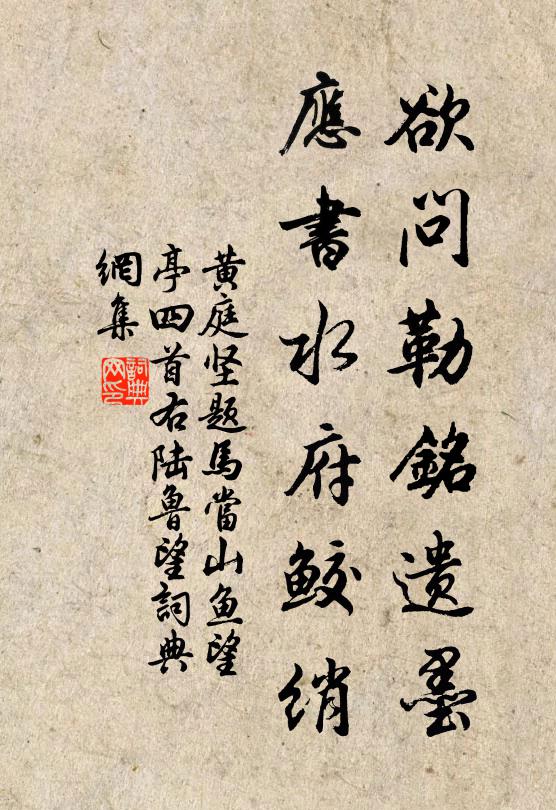 欲問勒銘遺墨
應書水府鮫綃
黃庭坚題馬當山魚望
亭四首右陆魯望詞典
網集
詞典網印